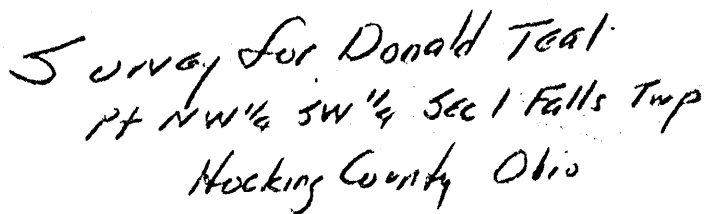 Survey for Donald Teal
Pt NW 1/4 SW 1/4 Sec 1 Falls Twp
Hocking County Ohio